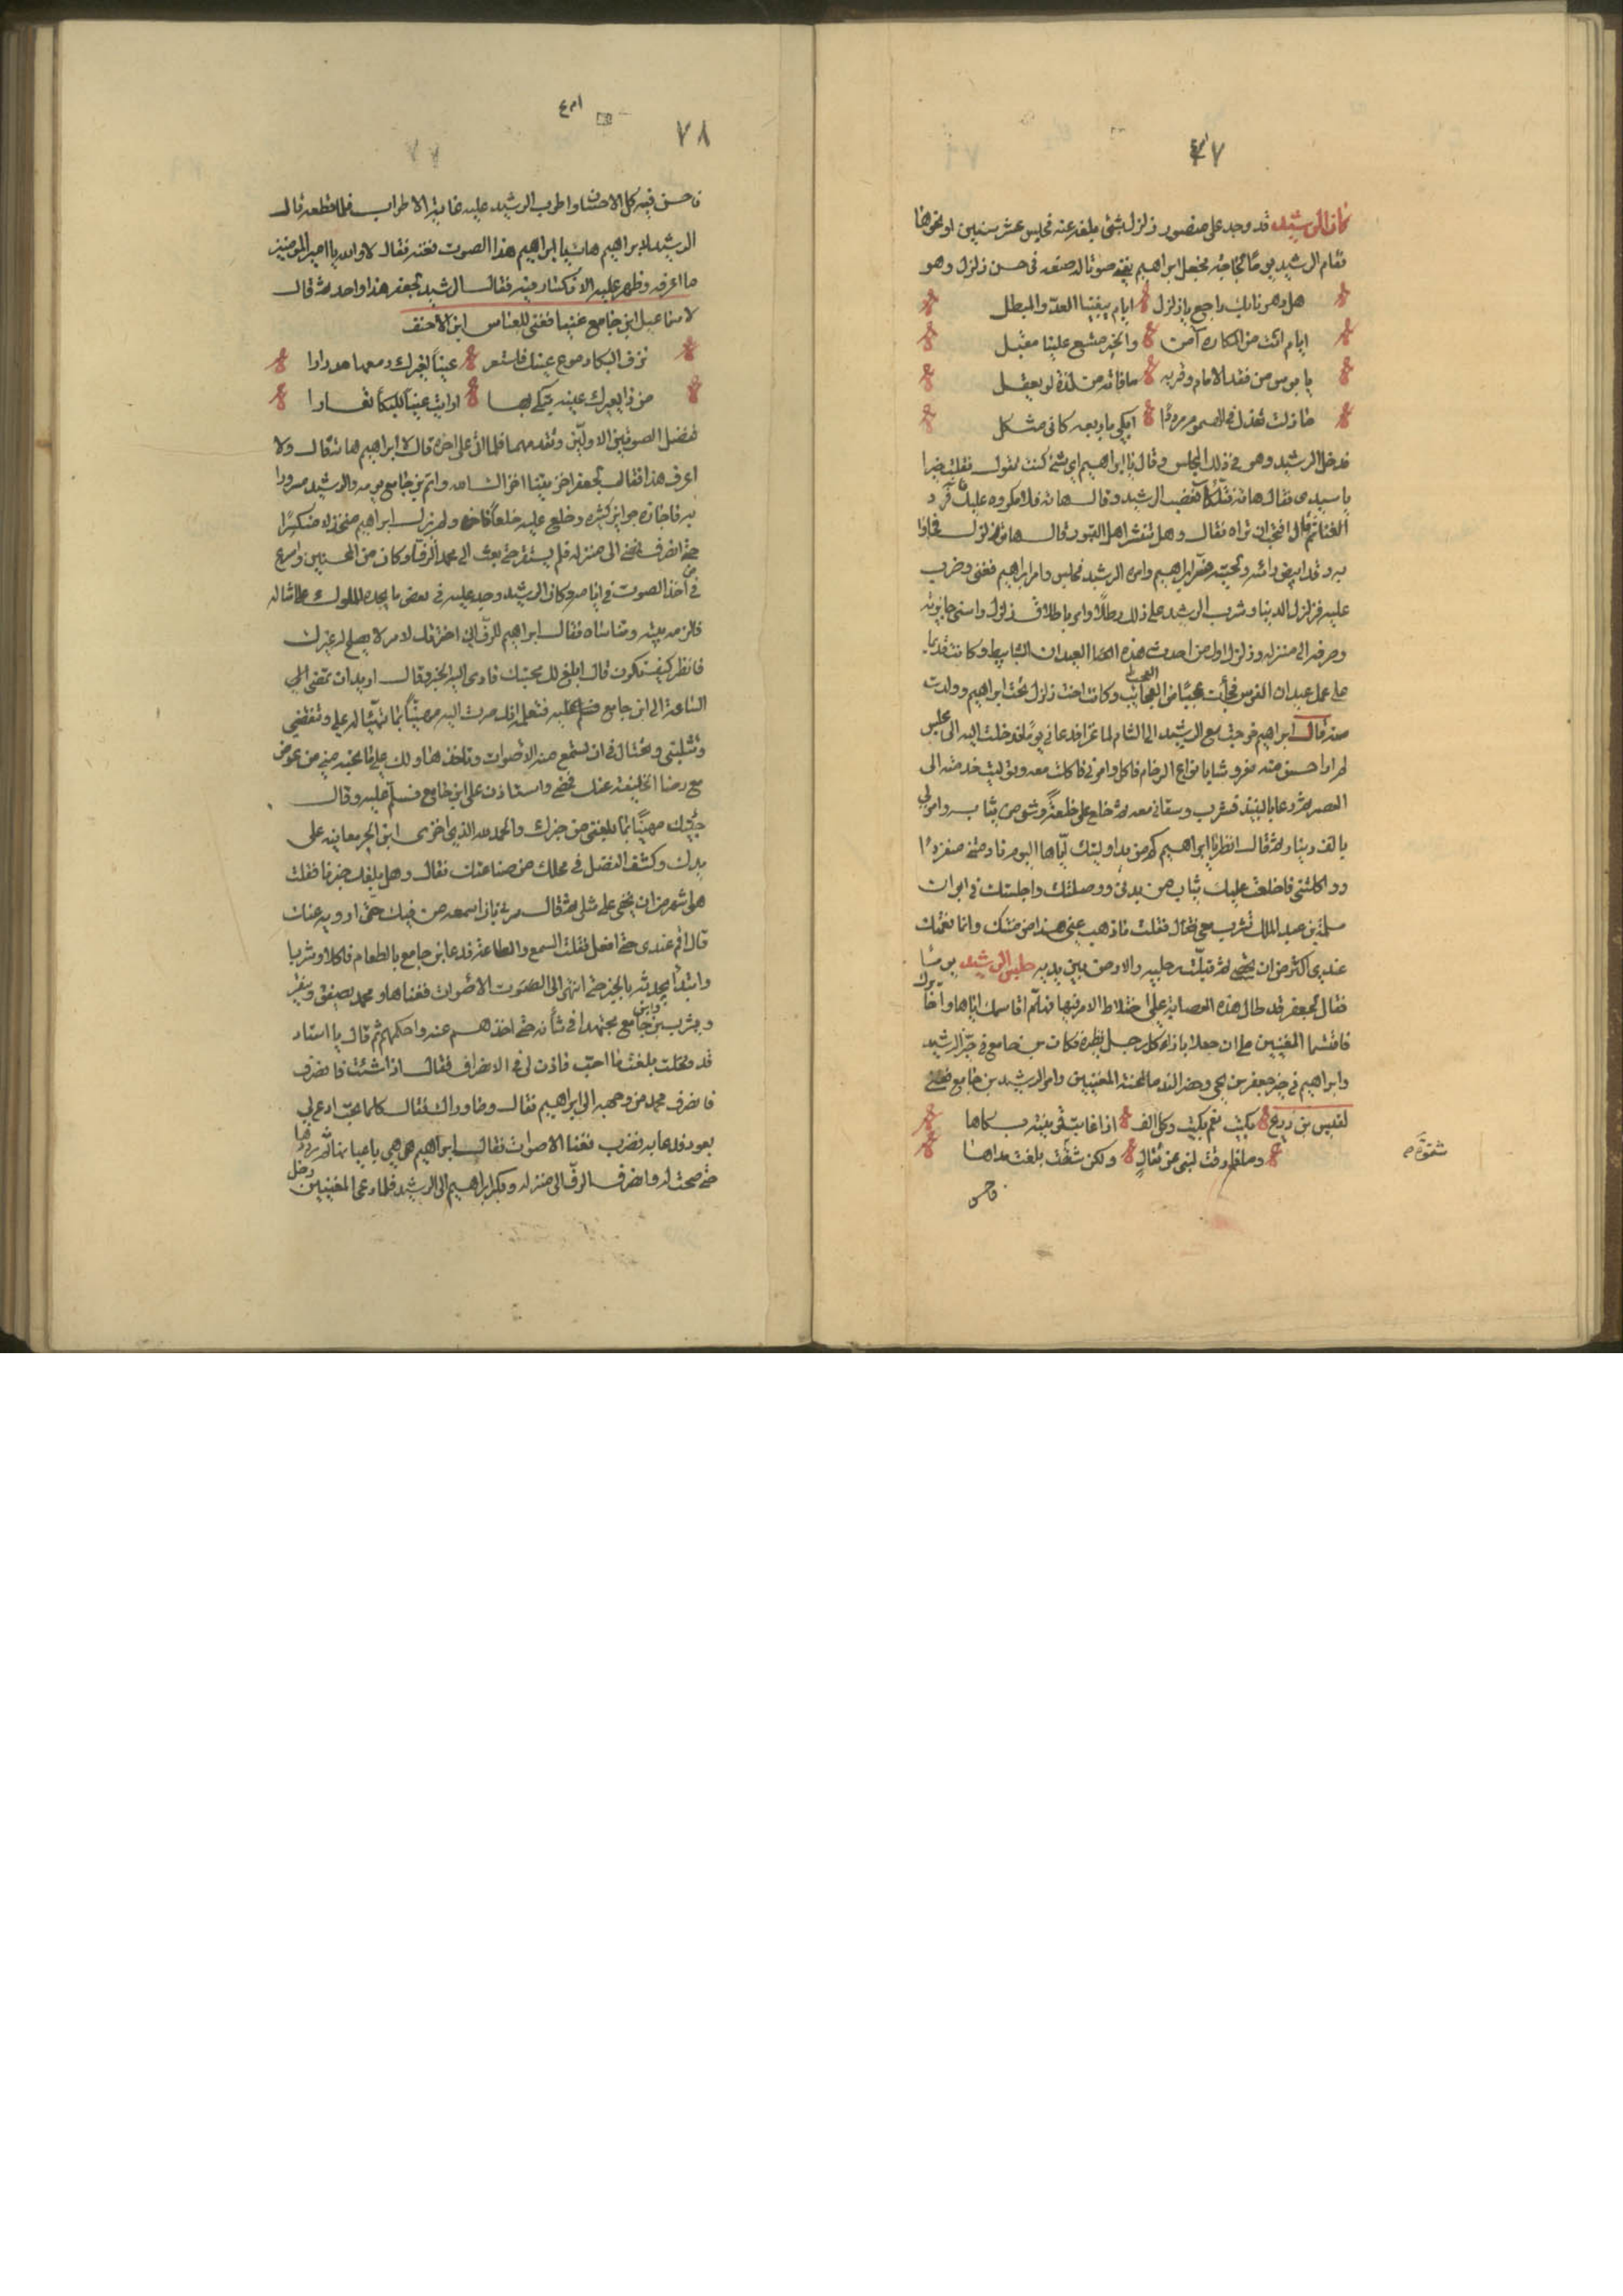 ٧٧
كان الرشيد قد وجد على منصور زلزل بشئ بلغه عنه فحبس عشر سنين او نحوها
فقام الرشيد يومًا لحاجته فجعل ابراهيم يغني صوتا له صنعه في حبس زلزل وهو
هل دهرنا بك راجع يا زلزل ايام يبغينا العدو المبطل
ايام انت من المكاره آمن والخير متسع علينا مقبل
يا بوس من فقد الامام وقربه ماذا به من لذة لو يعقل
ما زلت بعدك في الهموم مرددًا ابكي باربعة كاني مثكل
فدخل الرشيد وهو في ذلك المجلس وقال يا ابراهيم اي شئ كنت تقول فقلت خيرا
يا سيدي فقال هاته فتلكأ فغضب الرشيد وقال هاته فلا مكروه عليك فرد
الغنا ثم قال اتحب ان تراه فقال وهل ينشر اهل القبور قال هاتوا زلزل فجاؤا
به وقد ابيض رأسه ولحيته فسر ابراهيم وامره الرشيد فجلس وامر ابراهيم فغنى وضرب
عليه فزلزل الدنيا وشرب الرشيد على ذلك رطلًا وامر باطلاق زلزل واسنى جايزته
وصرفه الى منزله وزلزل اول من احدث هذه العيدان الشبابيط وكانت قديما
على عمل عيدان الفرس فجأت عجبًا من العجب وكانت اخت زلزل تحت ابراهيم وولدت
منه قال ابراهيم خرجت مع الرشيد الى الشام لما غزا فدعاني يومًا فدخلت اليه الى مجلس
لم ار احسن منه مفروشا بانواع الرخام فاكل وامرني فاكلت معه وتوليت خدمته الى
العصر ثم دعا بالنبيذ فشرب وسقاني معه ثم خلع علي خلعة وشي من ثيابه وامر لي
بالف دينار ثم قال انظر يا ابراهيم كم من يد اوليتك اياها اليوم نادمتني منفردًا
وواكلتني فاخلعت عليك ثيابي من بدني ووصلتك واجلستك في ايوان
مسلمة بن عبد الملك تشرب معي فقال فقلت ما ذهب عني هذا من منك وانما نعمك
عندي اكثر من ان تحصى ثم قبلت رجليه والارض بين يديه جلس الرشيد يومًا
فقال لجعفر قد طال هذه العصابة على اختلاط الامر فيها فهلم اقاسمك اياها واخايرك
فاقتسما المغنيين على ان جعلا بازاء كل رجل نظيره فكان بن جامع في حيز الرشيد
وابراهيم في حيز جعفر بن يحيى وحضر الندما لمحنة المغنيين وامر الرشيد بن جامع فغنى
لقيس بن ذريح بكيت نعم بكيت وكل الف اذا غابت قرينته بكاها
وما فارقت لبنى عن تقال ولكن شقوة بلغت مداها
شقوة
فاحسن
٧٨
فاحسن فيه كل الاحسان واطرب الرشيد عليه غاية الاطراب فلما قطعه قال
الرشيد لابراهيم هات يا ابراهيم هذا الصوت فغنه فقال لا والله يا امير المومنين
ما اعرفه وظهر عليه الانكسار فيه فقال الرشيد لجعفر هذا واحد ثم قال
لاسماعيل ابن جامع غنيا فغنى للعباس ابن الاحنف
نزف البكاء دموع عينك فاستعر عينًا لغيرك دمعها مدرارا
من ذا يعيرك عينه تبكي بها ارايت عينًا للبكاء تعارا
فتفضل الصوتين الاولين وتقدمهما فلما اتى على اخره قال لابراهيم هات فقال ولا
اعرف هذا فقال لجعفر اخزيتنا اخزاك الله واتم بن جامع يومه والرشيد مسرورا
به فاجازه جوايز كثيرة وخلع عليه خلعًا فاخرة ولم يزل ابراهيم منخذلا منكسرًا
حتى انصرف فمضى الى منزله فلم يستقر حتى بعث الى محمد الرف وكان من المحسنين واسرع
من اخذ الصوت في ايامه وكان الرشيد وجد عليه في بعض ما يجده الملوك على امثاله
فالزمه بيته وتناساه فقال ابراهيم للرف اني اخترتك لامر لا يصلح له غيرك
فانظر كيف تكون قال ابلغ لك محبتك فادى اليه الخبر وقال اريد ان تمضي الى
الساعة الى ابن جامع فسلم عليه فتعلمه انك صرت اليه مهنيًا بما تهيا له علي وتنقصني
وتثلبني وتحتال في ان تسمع منه الاصوات وتاخذها ولك علي ما تحبه مني من عوض
مع رضا الخليفة عنك فمضى واستاذن على ابن جامع فسلم عليه وقال
جئتك مهنيًا بما بلغني من خبرك والحمد لله الذي اخزى ابن الجرمقانية على
يدك وكشف الفضل في محلك من صناعتك فقال وهل بلغك خبرنا فقلت
هو اشهر من ان يخفى على مثلي ثم قال من تاق ان اسمعه من فيك حتى ارويه عنك
قال اقم عندي حتى افعل فقلت السمع والطاعة فدعا بن جامع بالطعام فاكلا وشربا
وابتدأ يحدثه بالخبر حتى انتهى الى الصوت الاصوات فغناها ومحمد يصفق وينقر
ويشرب وابن جامع مجتهدا في شأنه حتى اخذهم عنه واحكمهم ثم قال يا استاد
قد وصلت بلغت ما احب فاذن لي في الانصراف فقال اذا شئت فانصرف
فانصرف محمد من وجهه الى ابراهيم فقال وما وراك فقال كلما تحب ادع لي
بعود فدعا به فضرب فغنا الاصوات فقال ابراهيم هي هي يا حياتنا ثم رددها
حتى صحت له وانصرف الرف الى منزله وبكر ابراهيم الى الرشيد فلما دعى المغنيين دخل